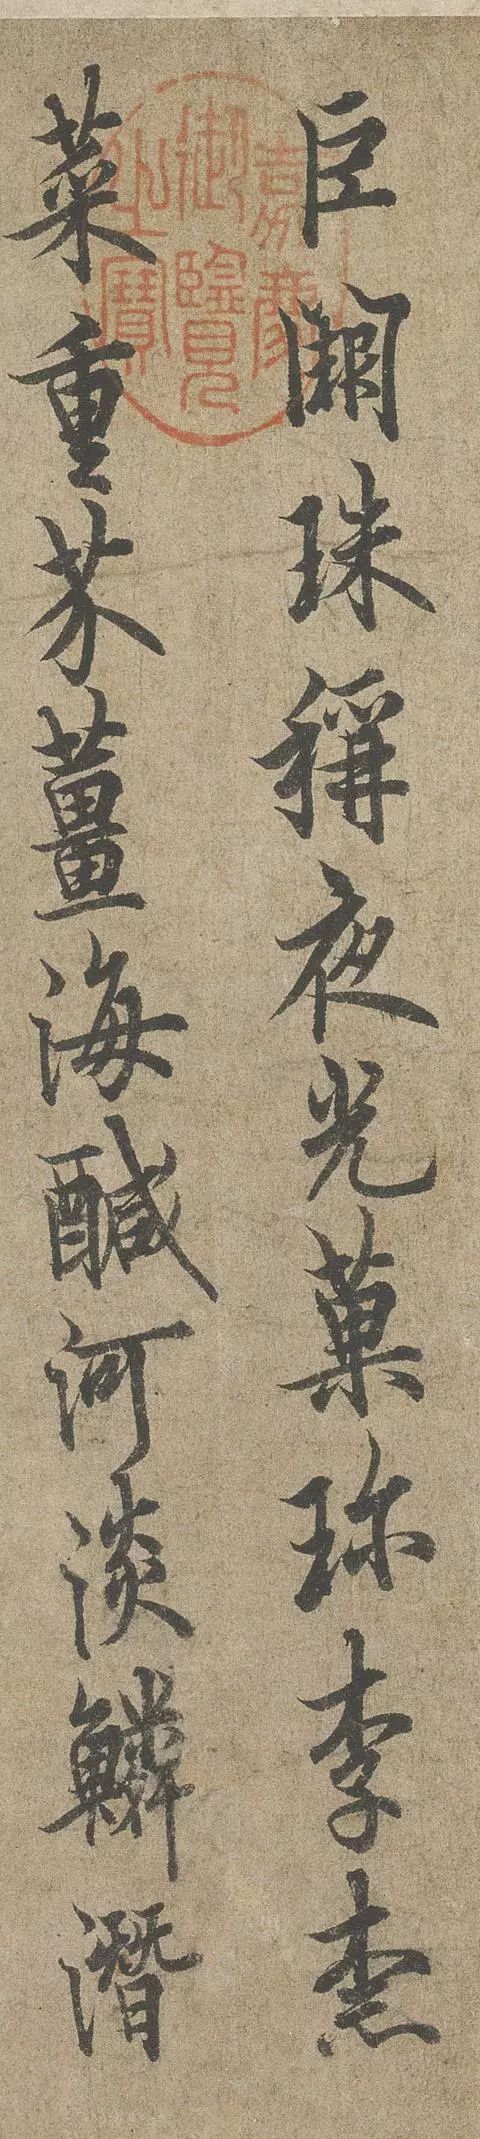 巨闕珠稱夜光菓珎李柰
菜重芥薑海醎河淡鱗潛
嘉慶御覽之寶